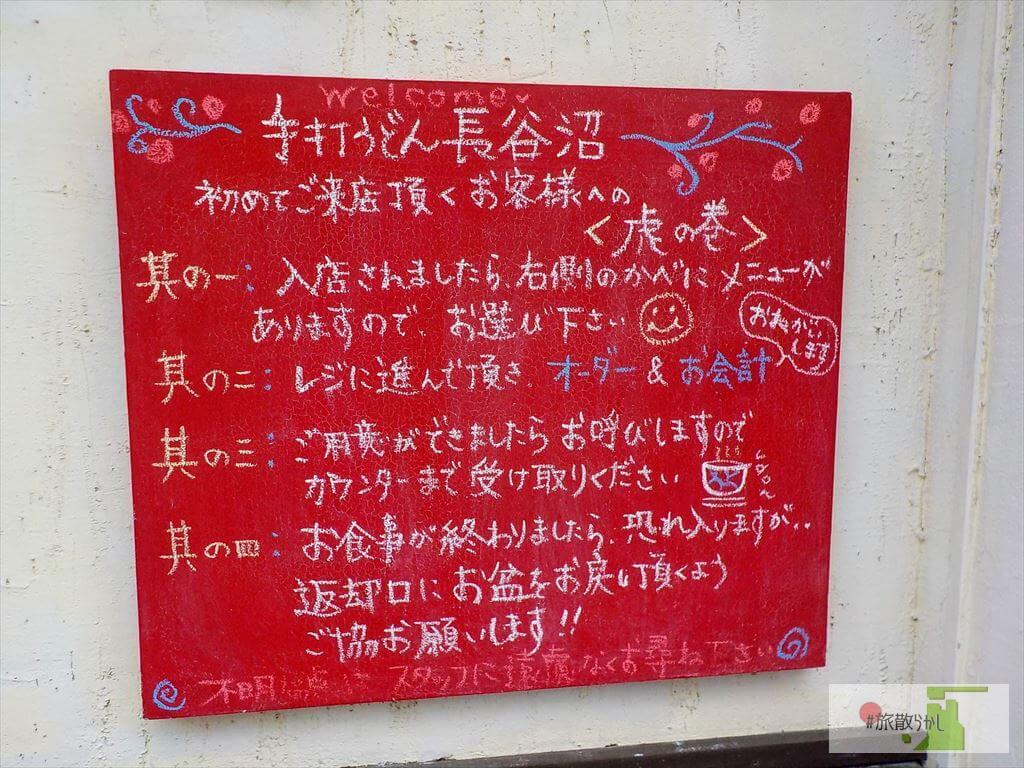 welcome
手打うどん長谷沼
初めてご来店頂くお客様への
<虎の巻>
其の一: 入店されましたら、右側のかべにメニューが
ありますので、お選び下さい
おねがいします
其の二: レジに進んで頂き、オーダー & お会計
其の三: ご用意ができましたらお呼びしますので
カウンターまで受け取りください
其の四: お食事が終わりましたら、恐れ入りますが..
返却口にお盆をお戻し頂くよう
ご協お願いします!!
スタッフに遠慮なくお尋ね下さい
#旅散らかし